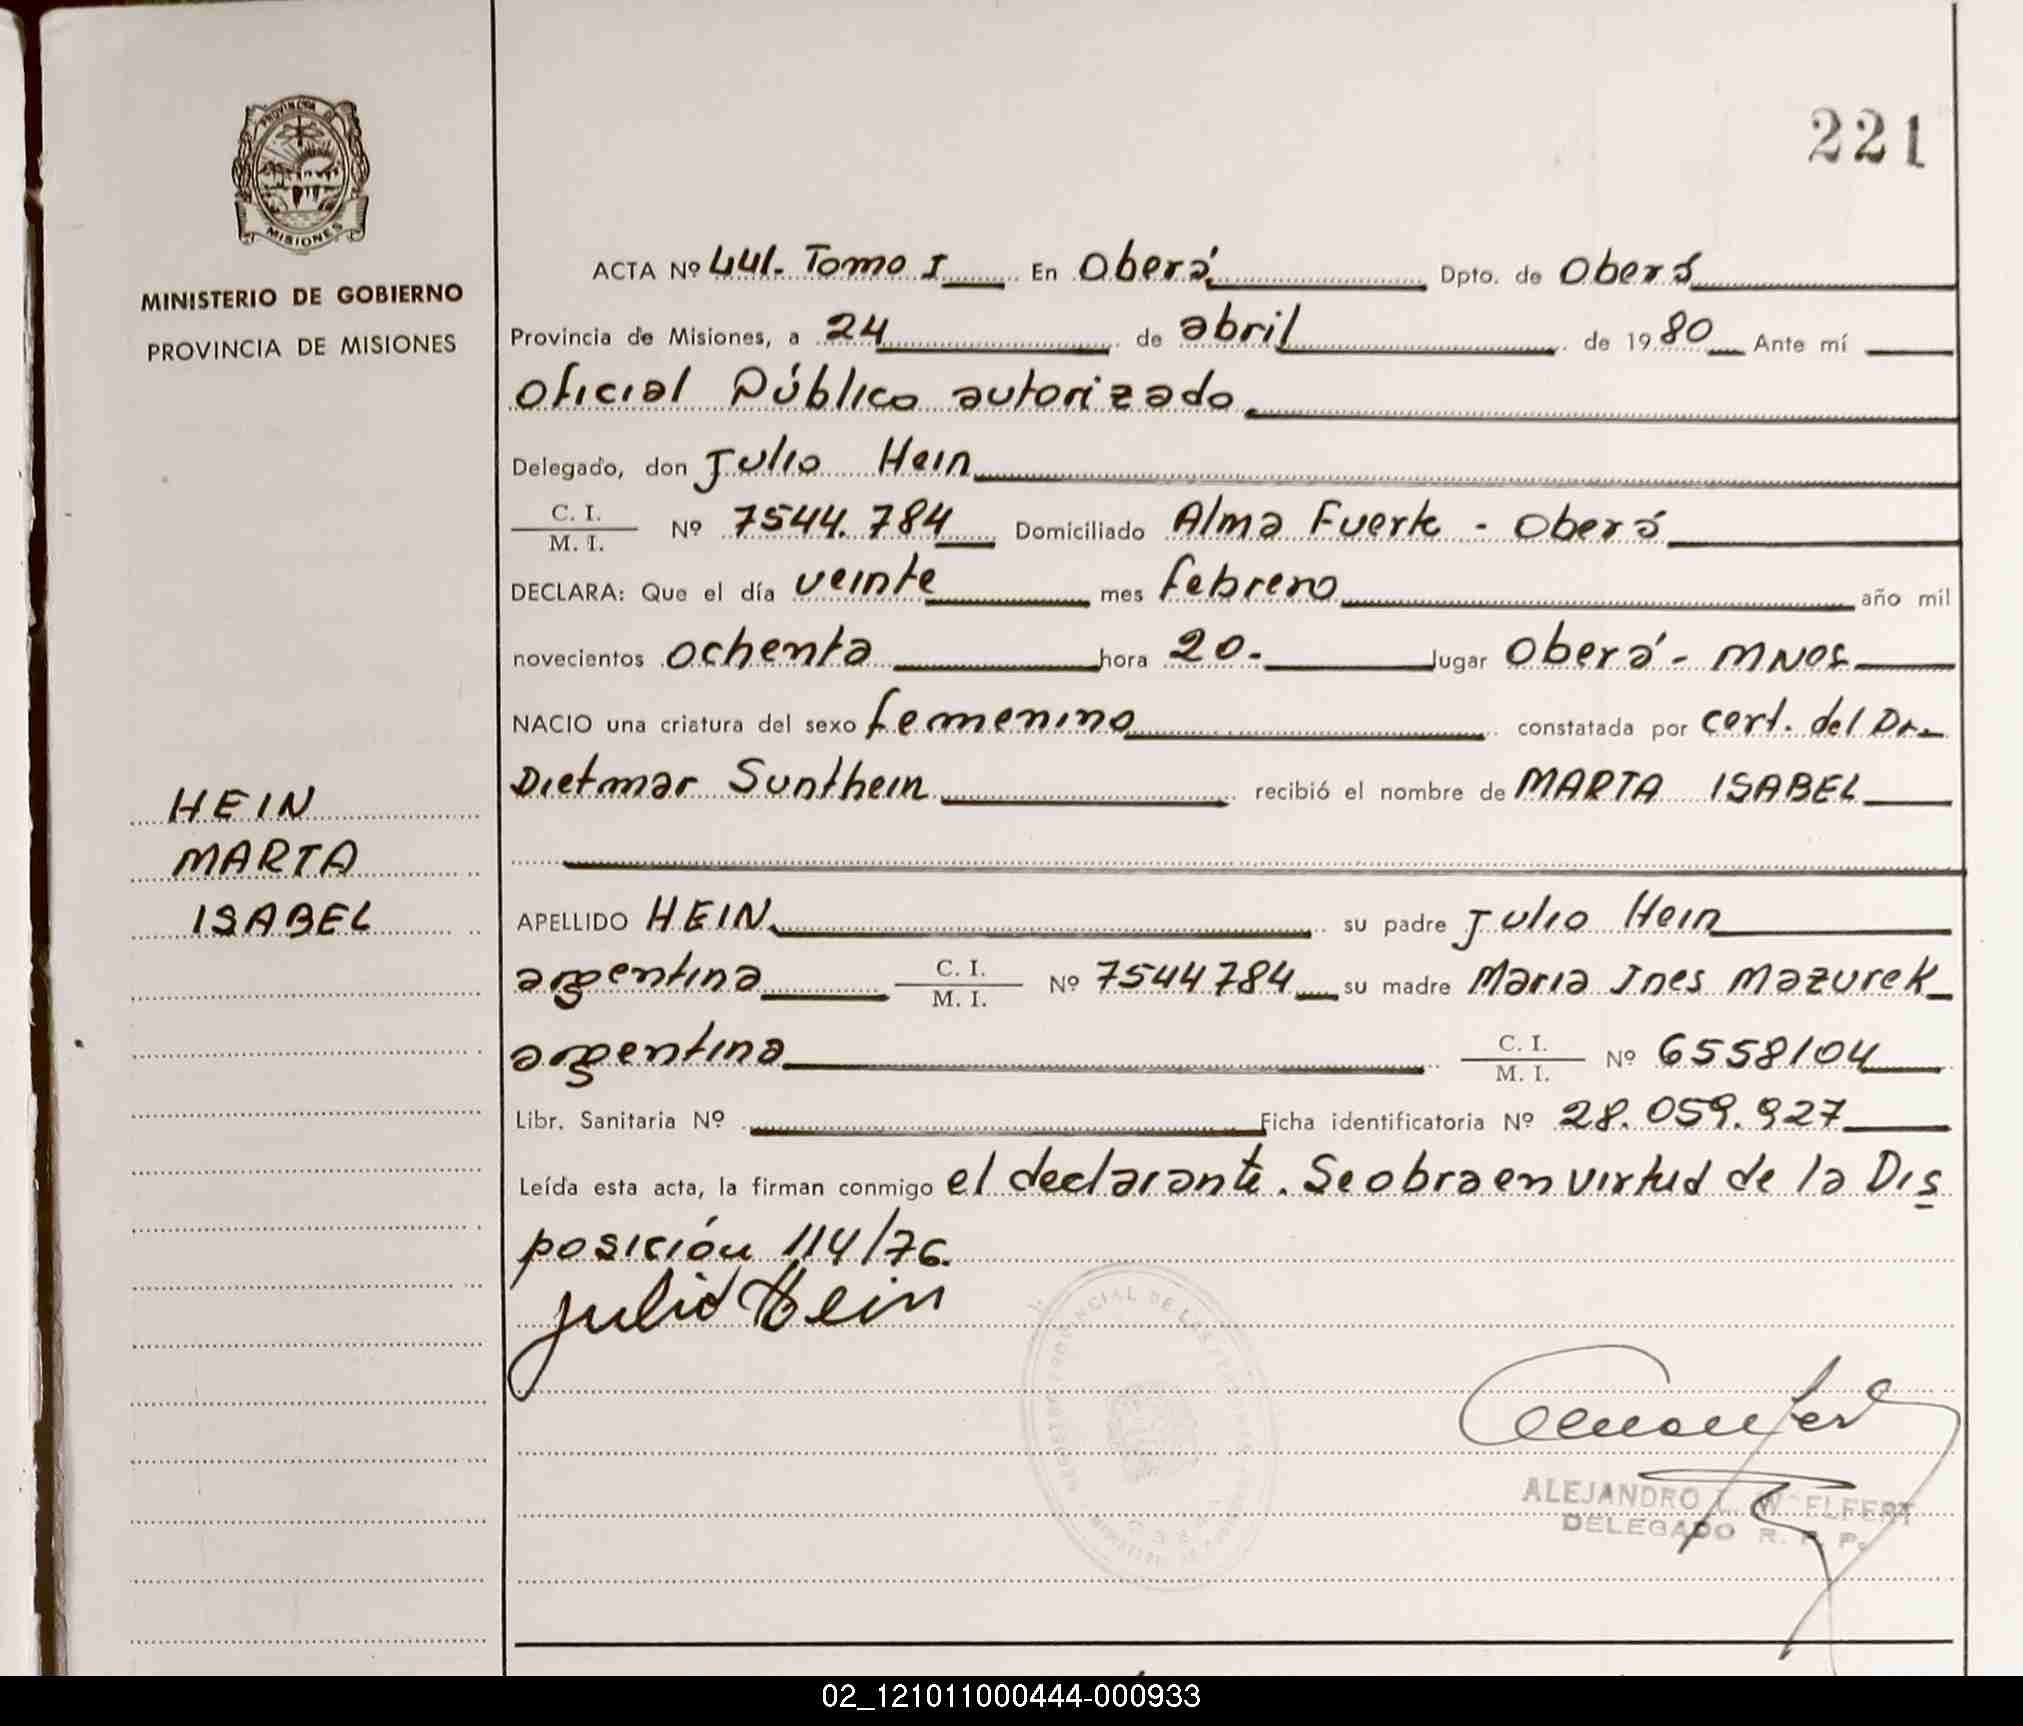 PROVINCIA DE
MISIONES
MINISTERIO DE GOBIERNO
PROVINCIA DE MISIONES
HEIN
MARTA
ISABEL
221
ACTA Nº 441. Tomo I En Oberá Dpto. de Oberá
Provincia de Misiones, a 24 de abril de 1980 Ante mí
Oficial Público autorizado
Delegado, don Julio Hein
C. I. / M. I. Nº 7544.784 Domiciliado Alma Fuerte - Oberá
DECLARA: Que el día veinte mes febrero año mil
novecientos ochenta hora 20.- lugar Oberá - MNOS
NACIO una criatura del sexo femenino constatada por cert. del Dr.
Dietmar Sunthein recibió el nombre de MARTA ISABEL
APELLIDO HEIN su padre Julio Hein
argentina C. I. / M. I. Nº 7544784 su madre Maria Ines Mazurek
argentina C. I. / M. I. Nº 6558104
Libr. Sanitaria Nº Ficha identificatoria Nº 28.059.927
Leída esta acta, la firman conmigo el declarante. Se obra en virtud de la Dis
posición 114/76.
Julio Hein
ALEJANDRO WELFERT
DELEGADO R. P. P.
02_121011000444-000933